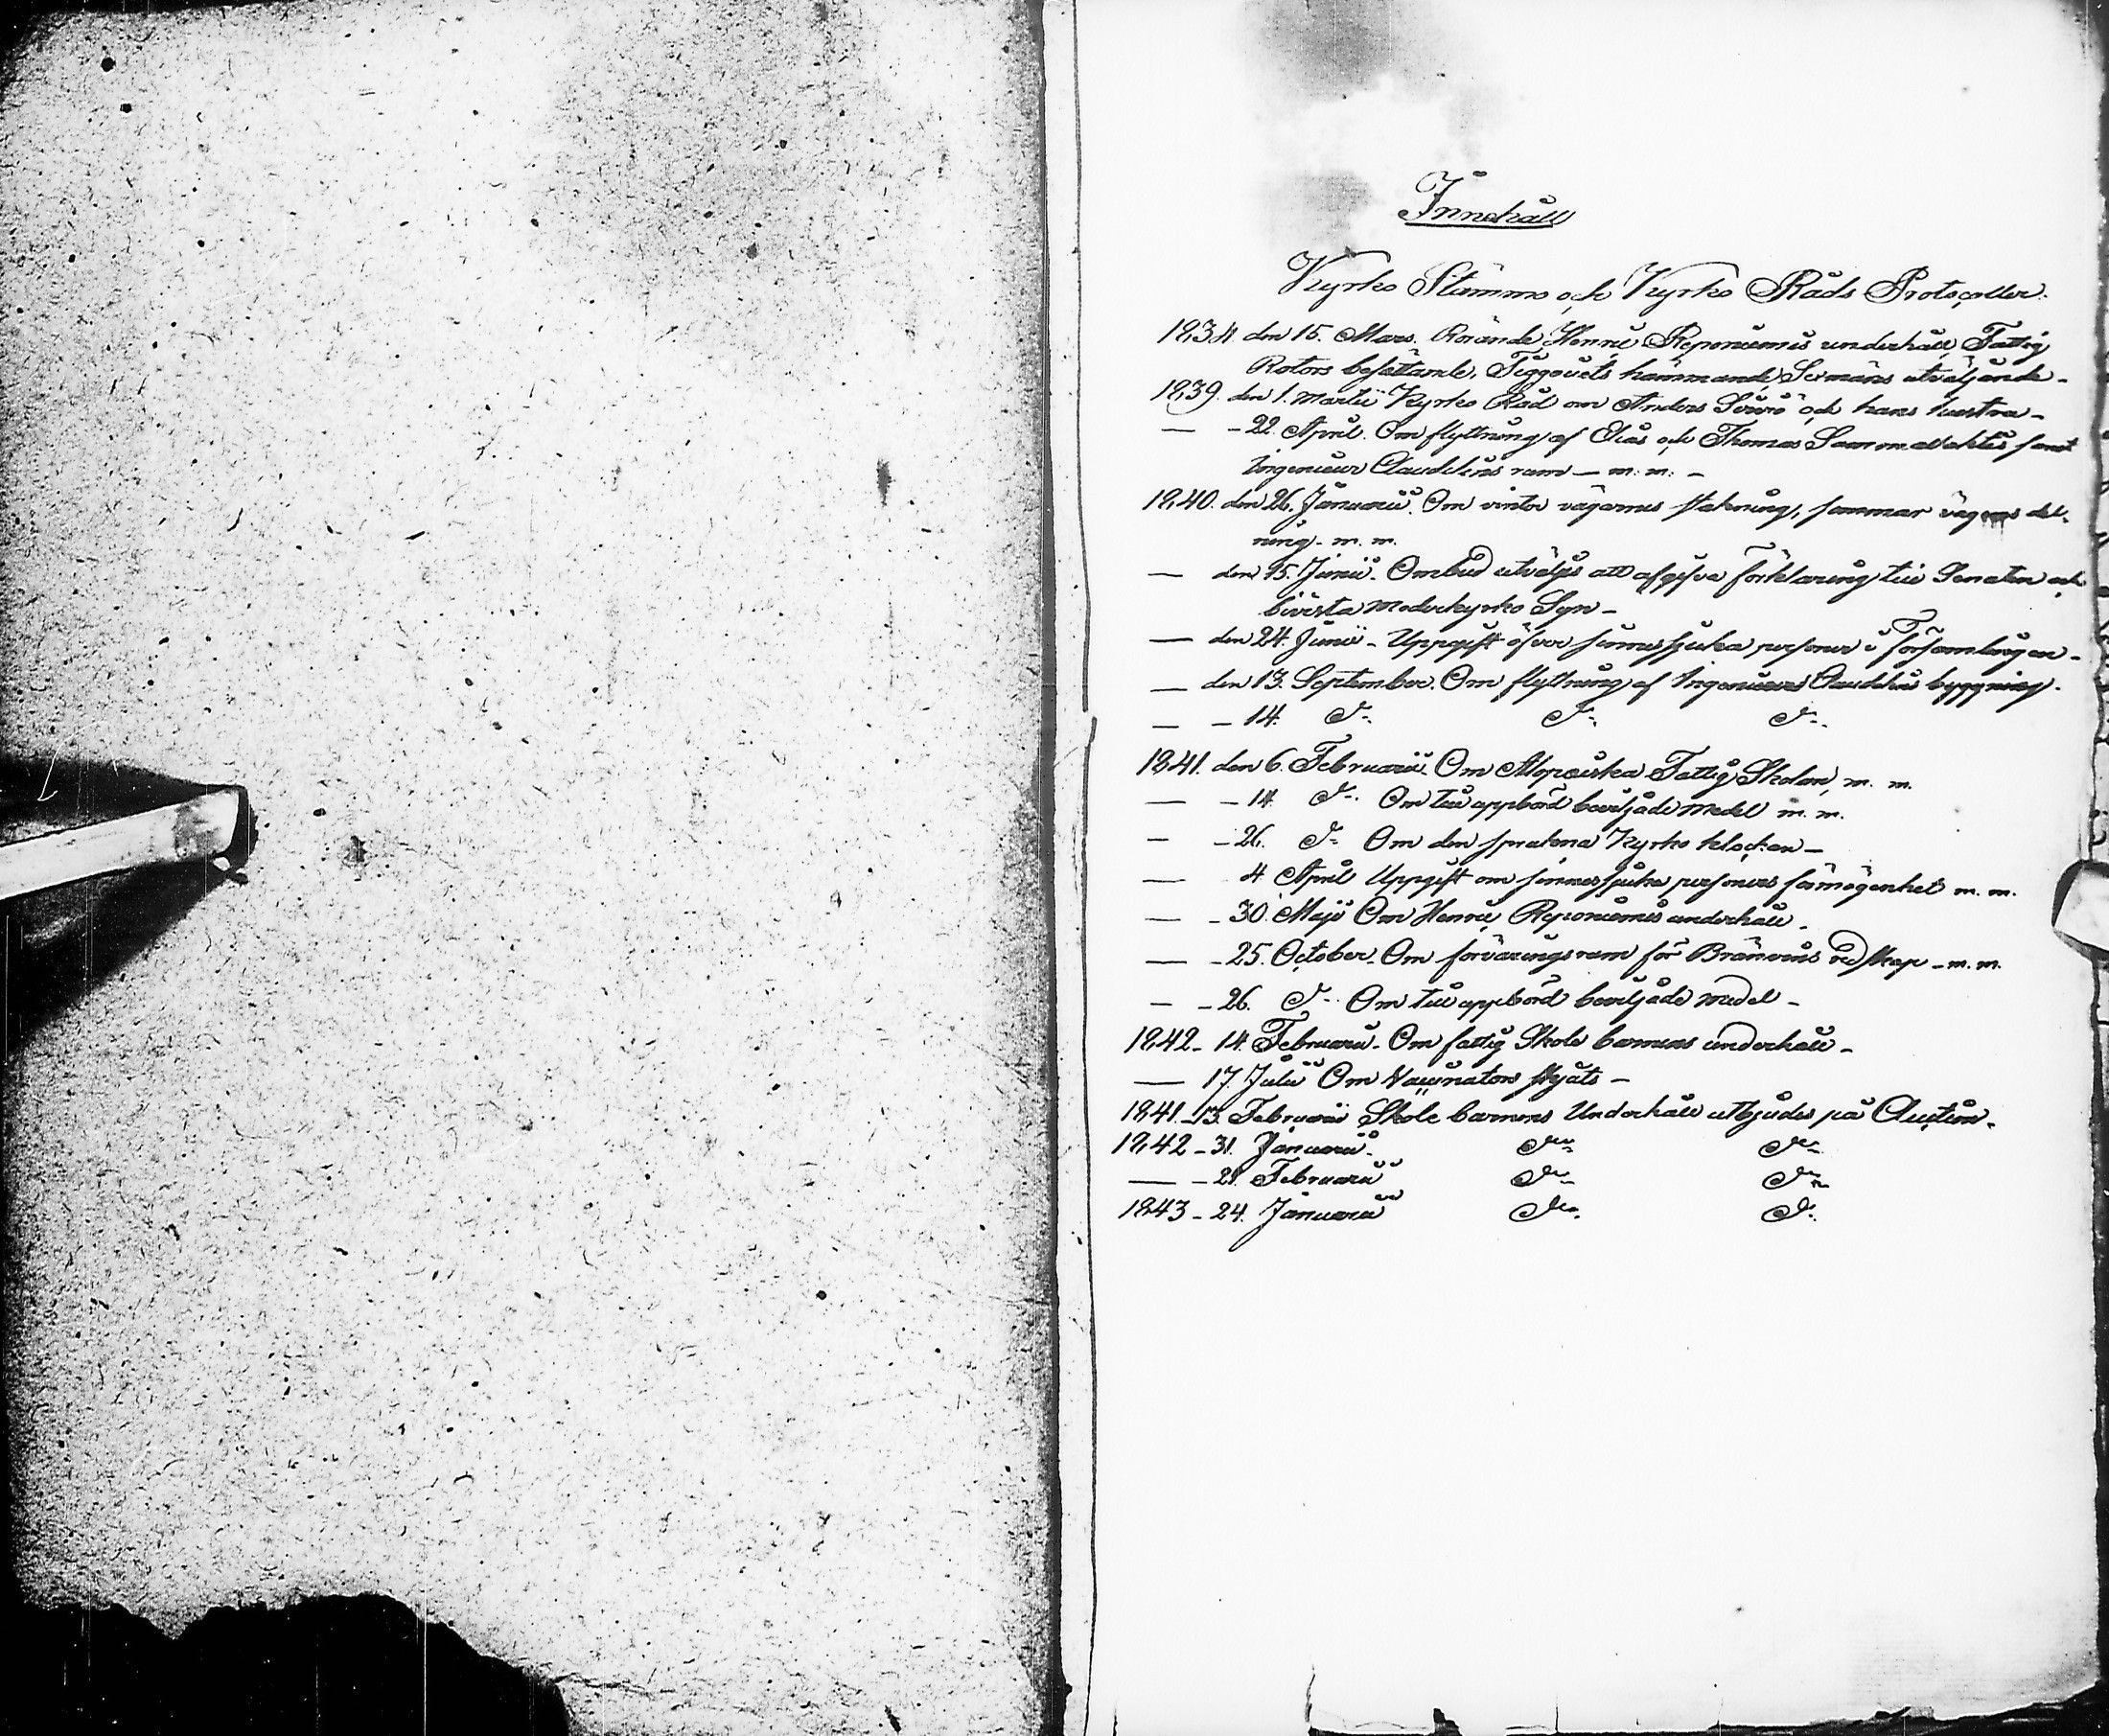 Innehåll
Kyrko Stämmo och Kyrko Råds Protocoller.
1834 den 15. Mars. Rörande Henric Reponiemis underhåll, Fattig
Rotors besättande, Tiggeriets hämmande, Sexmäns utväljande -
1839. den 1. Martii Kyrko Råd om Anders och hans hustru -
— - 22. April. Om flyttning af Elias och Thomas samt
Ingenieur Claudelins rum — m. m. -
1840. den 26. Januarii. Om vinter vägarnes stakning, sommar vägens del-
ning - m. m.
— den 15. Junii - Ombud utväljs att afgifva förklaring till Senaten och
bivista moderkyrko Syn -
— den 24. Junii - Uppgift öfver sinnessjuka personer i församlingen -
— den 13. September. Om flyttning af Ingenieurs Claudelins byggning.
— - 14. D:o D:o D:o
1841. den 6. Februarii. Om Alopaeiska Fattig Skolan, m. m.
— - 14. D:o Om till uppbörd beviljade medel m. m.
— - 26. D:o Om den spruckna Kyrko klockan —
— 4 April Uppgift om sinnessjuka personers förmögenhet m. m.
— - 30. Maji Om Henric Reponiemis underhåll -
— - 25. October. Om förvaringsrum för Bränvins redskap - m. m.
— - 26. D:o Om till uppbörd beviljade medel -
1842 - 14. Februarii - Om fattig Skole barnens underhåll -
— 17. Julii Om Vaccinatorns skjuts -
1841. - 13. Februarii Skole barnens Underhåll utbjudes på Auction.
1842 - 31. Januarii. D:o D:o
— - 21. Februarii D:o D:o
1843 - 24. Januarii D:o D:o